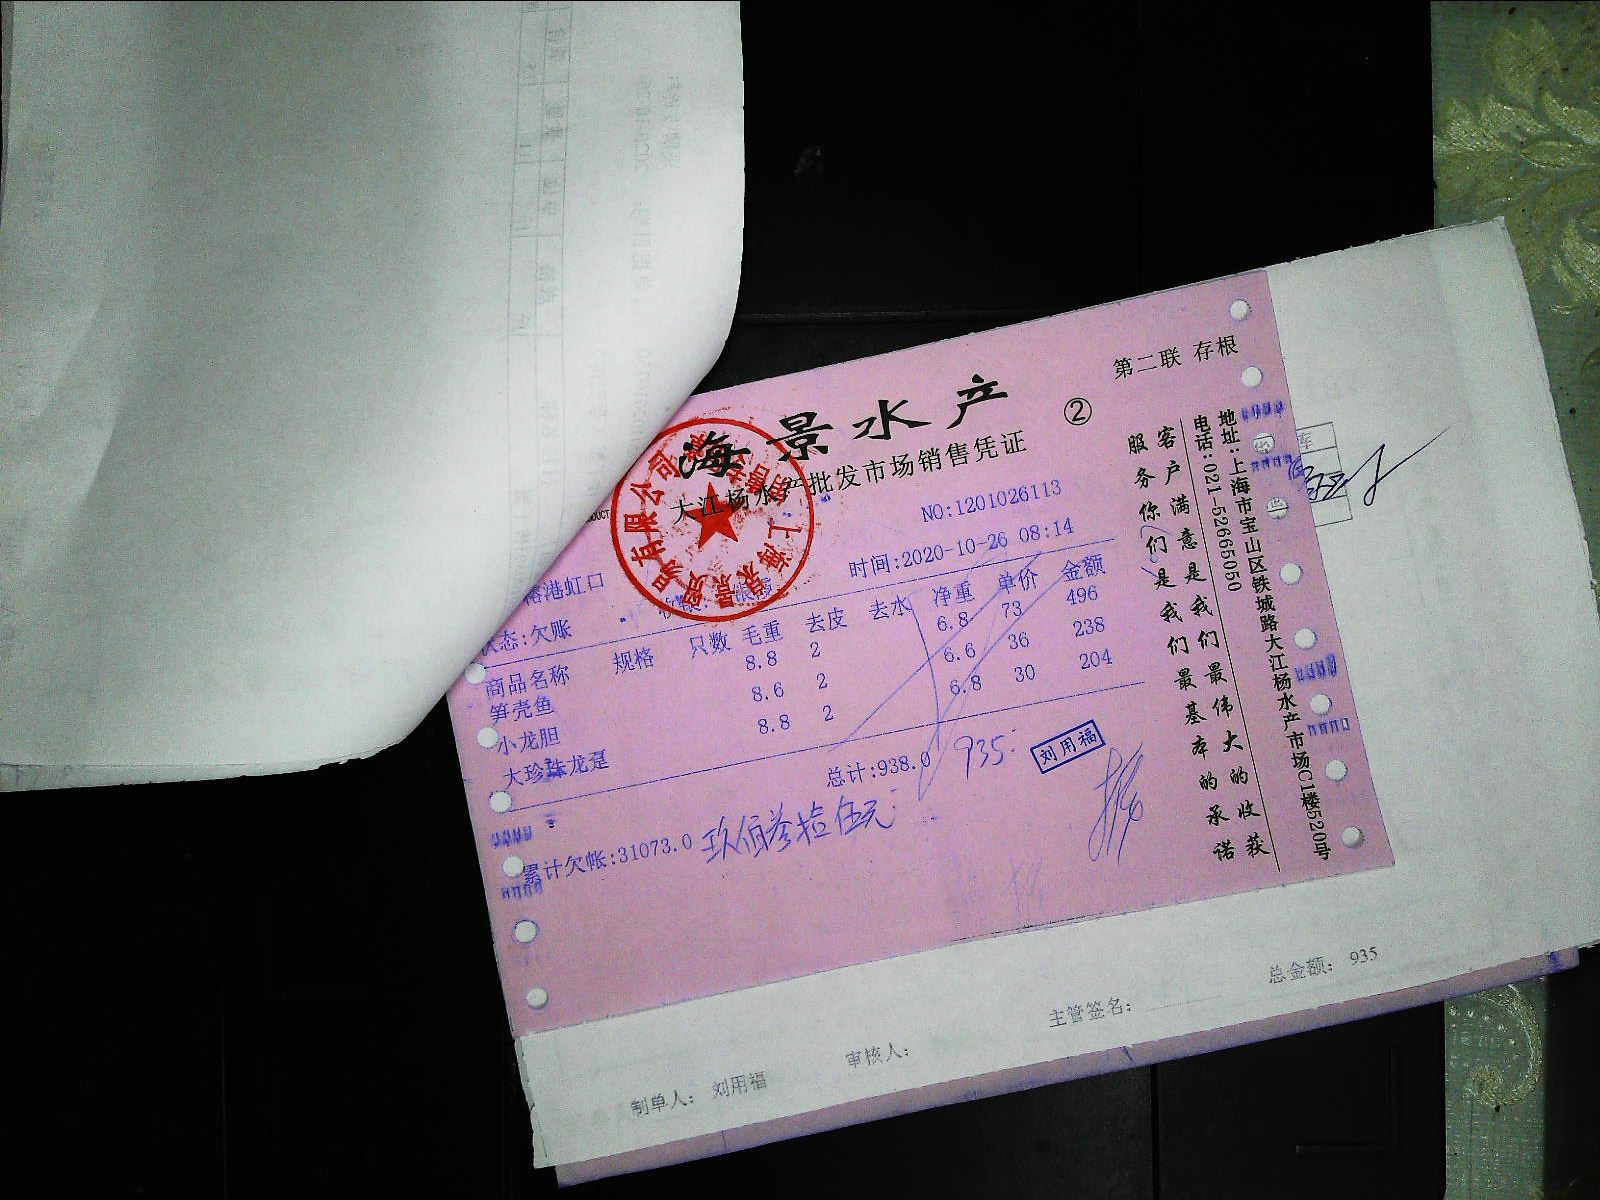 第二联 存根
海景水产
②
大江杨水产批发市场销售凭证
NO:1201026113
港虹口
时间:2020-10-26 08:14
状态:欠账
商品名称 规格 只数 毛重 去皮 去水 净重 单价 金额
笋壳鱼 8.8 2 6.8 73 496
小龙胆 8.6 2 6.6 36 238
大珍珠龙趸 8.8 2 6.8 30 204
总计:938.0 935
刘用福
累计欠帐:31073.0 玖佰叁拾伍元
客户满意是我们最伟大的收获
服务你们是我们最基本的承诺
地址:上海市宝山区铁城路大江杨水产市场C1楼520号
电话:021-52665050
制单人: 刘用福 审核人: 主管签名: 总金额: 935